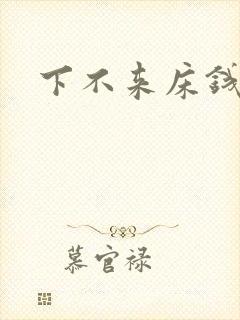 下不来床钱
慕官禄